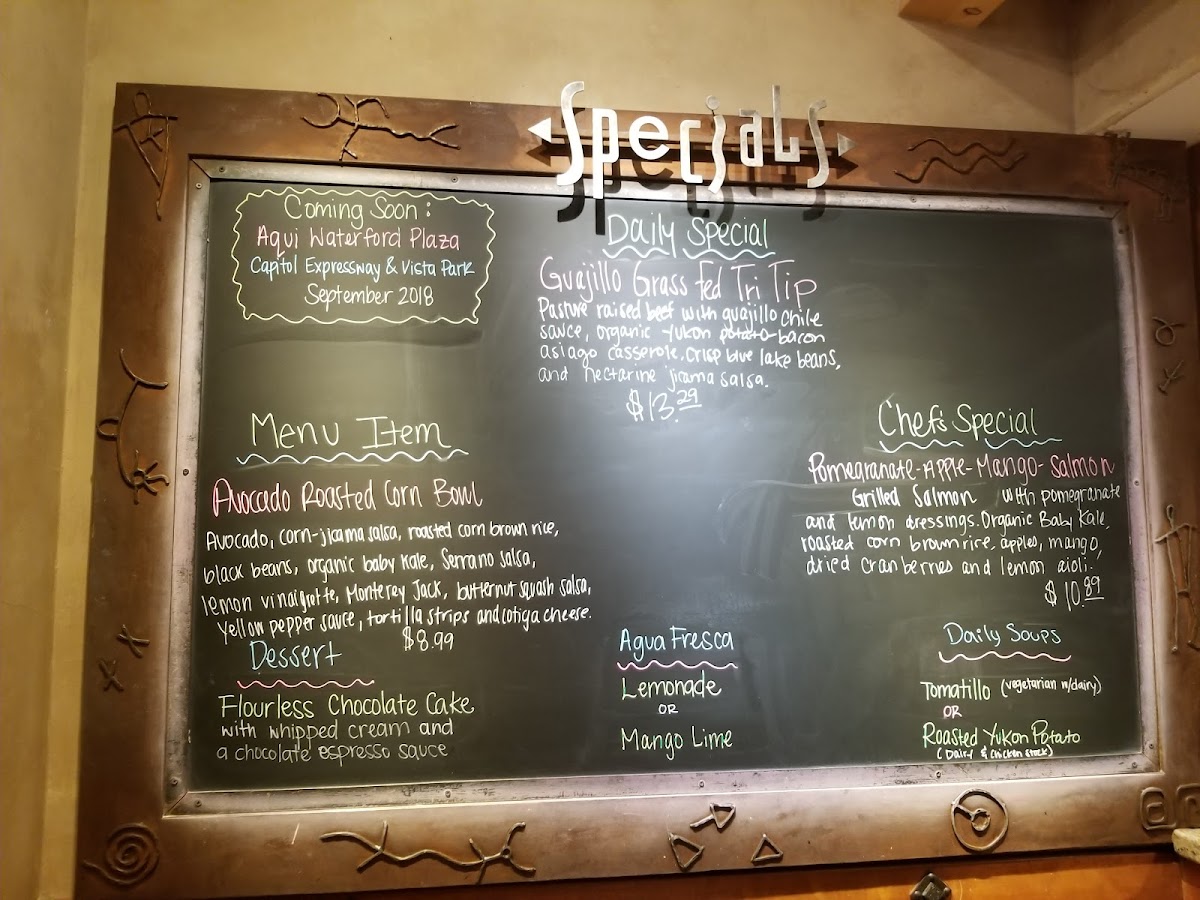 Specials
Coming Soon:
Aqui Waterford Plaza
Capitol Expressway & Vista Park
September 2018
Daily Special
Guajillo Grass Fed Tri Tip
Pasture raised beef with guajillo chile
sauce, organic yukon potato-bacon
asiago casserole, crisp blue lake beans,
and nectarine jicama salsa.
$13.29
Menu Item
Avocado Roasted Corn Bowl
Avocado, corn-jicama salsa, roasted corn brown rice,
black beans, organic baby kale, Serrano salsa,
lemon vinaigrette, Monterey Jack, butternut squash salsa,
yellow pepper sauce, tortilla strips and cotiga cheese.
$8.99
Chef's Special
Pomegranate-Apple-Mango-Salmon
Grilled Salmon with pomegranate
and lemon dressings. Organic Baby Kale,
roasted corn brown rice, apples, mango,
dried cranberries and lemon aioli.
$10.89
Dessert
Flourless Chocolate Cake
with whipped cream and
a chocolate espresso sauce
Agua Fresca
Lemonade
OR
Mango Lime
Daily Soups
Tomatillo (vegetarian w/dairy)
OR
Roasted Yukon Potato
(Dairy & Chicken Stock)